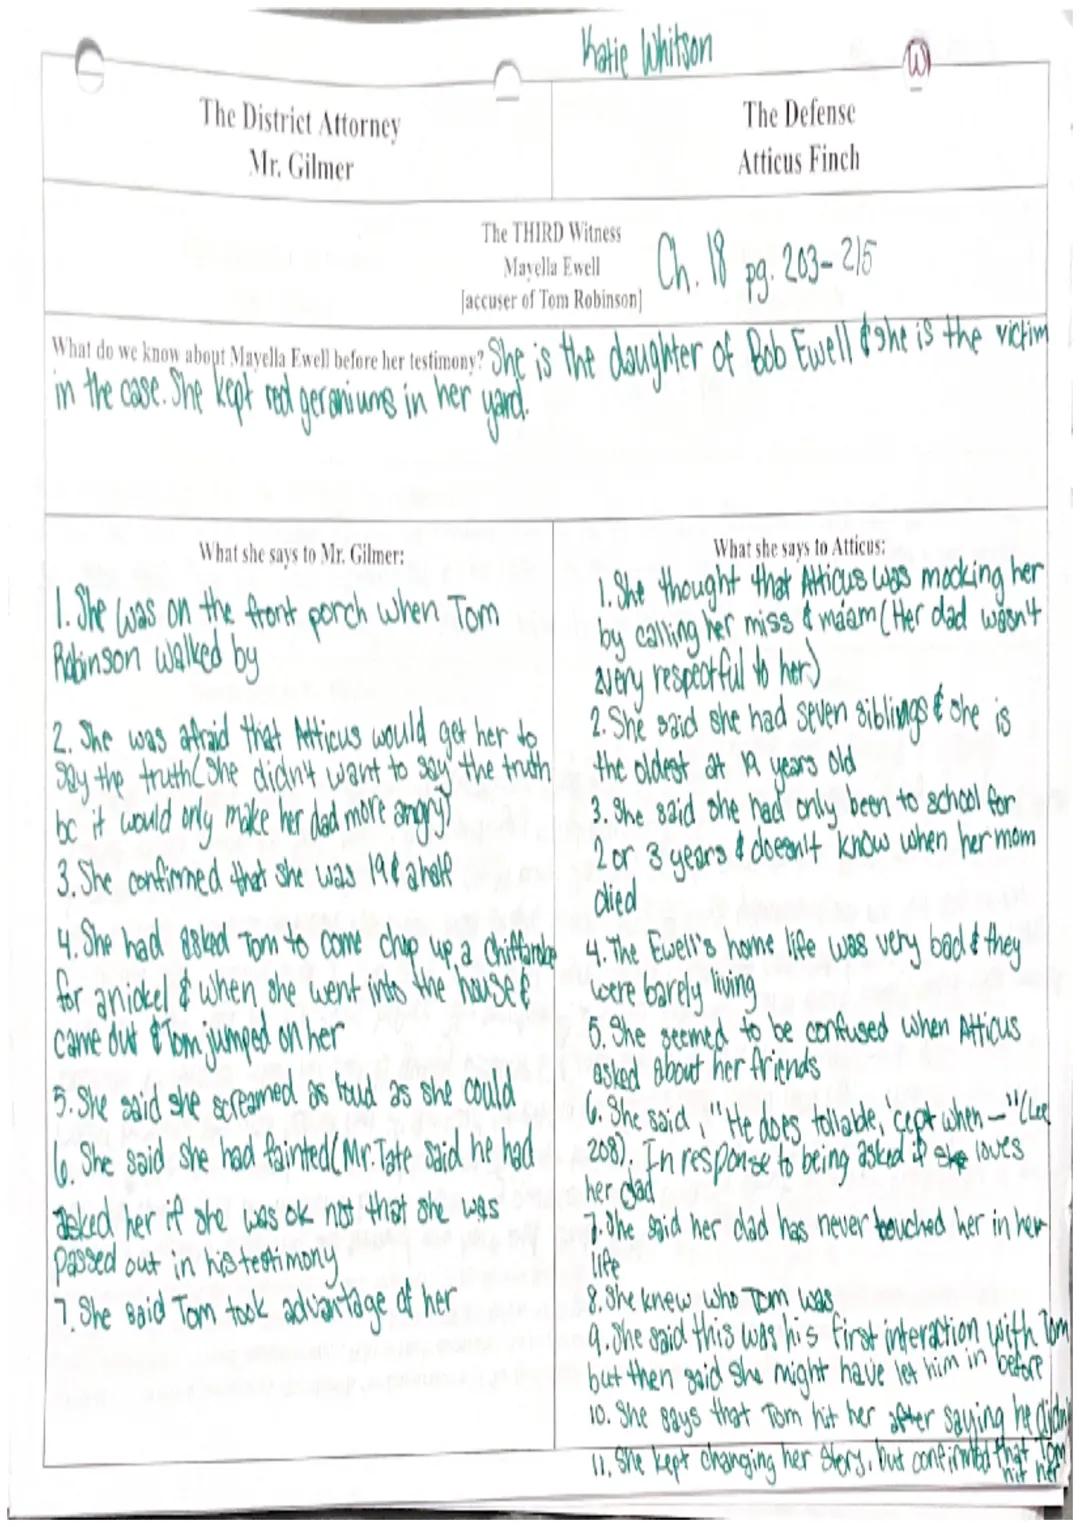 Katie Whitson
W
The District Attorney
Mr. Gilmer
The Defense
Atticus Finch
The THIRD Witness
Mayella Ewell
[accuser of Tom Robinson]
Ch. 18 pg. 203-215
What do we know about Mayella Ewell before her testimony? She is the daughter of Bob Ewell & she is the victim
in the case. She kept red geraniums in her yard.
What she says to Mr. Gilmer:
1. She was on the front porch when Tom
Robinson walked by
2. She was afraid that Atticus would get her to
say the truth (She didn't want to say the truth
bc it would only make her dad more angry)
3. She confirmed that she was 19 & a half
4. She had asked Tom to come chop up a chiffarobe
for a nickel & when she went into the house &
came out & Tom jumped on her
5. She said she screamed as loud as she could
6. She said she had fainted (Mr. Tate said he had
asked her if she was ok not that she was
passed out in his testimony
7. She said Tom took advantage of her
What she says to Atticus:
1. She thought that Atticus was mocking her
by calling her miss & ma'am (Her dad wasn't
very respectful to her)
2. She said she had seven siblings & she is
the oldest at 19 years old
3. She said she had only been to school for
2 or 3 years & doesn't know when her mom
died
4. The Ewell's home life was very bad & they
were barely living
5. She seemed to be confused when Atticus
asked about her friends
6. She said, "He does tollable, 'cept when—" (Lee
208). In response to being asked if she loves
her dad
7. She said her dad has never touched her in her
life
8. She knew who Tom was
9. She said this was his first interaction with Tom
but then said she might have let him in before
10. She says that Tom hit her after saying he didn't
11. She kept changing her story, but confirmed that Tom
hit her